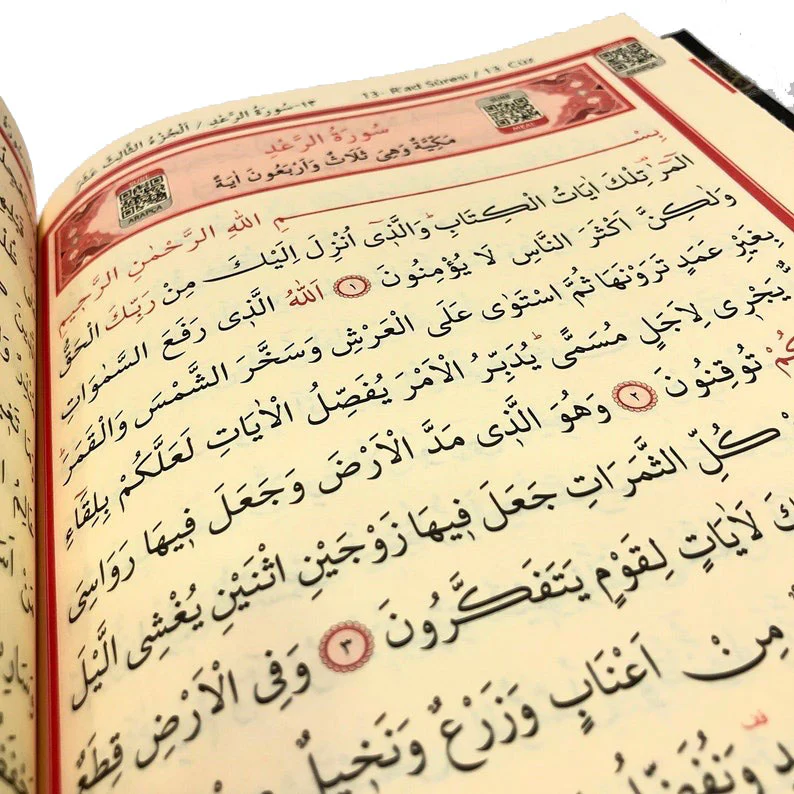 ١٣-سُورَةُ الرَّعْدِ / اَلْجُزْءُ الثَّالِثُ عَشَرَ
13- Ra'd Sûresi / 13. Cüz
سُورَةُ الرَّعْدِ
مَكِّيَّةٌ وَهِيَ ثَلَاثٌ وَاَرْبَعُونَ اٰيَةً
MEAL
ARAPÇA
بِسْــــمِ اللّٰهِ الرَّحْمٰنِ الرَّحٖيمِ
الٓمٓرٰ تِلْكَ اٰيَاتُ الْكِتَابِۜ وَالَّذٖٓى اُنْزِلَ اِلَيْكَ مِنْ رَبِّكَ الْحَقُّ
وَلٰكِنَّ اَكْثَرَ النَّاسِ لَا يُؤْمِنُونَ ﴿١﴾ اَللّٰهُ الَّذٖى رَفَعَ السَّمٰوَاتِ
بِغَيْرِ عَمَدٍ تَرَوْنَهَا ثُمَّ اسْتَوٰى عَلَى الْعَرْشِ وَسَخَّرَ الشَّمْسَ وَالْقَمَرَۜ
يَجْرٖى لِاَجَلٍ مُسَمًّىۜ يُدَبِّرُ الْاَمْرَ يُفَصِّلُ الْاٰيَاتِ لَعَلَّكُمْ بِلِقَٓاءِ
تُوقِنُونَ ﴿٢﴾ وَهُوَ الَّذٖى مَدَّ الْاَرْضَ وَجَعَلَ فٖيهَا رَوَاسِىَ
كُلِّ الثَّمَرَاتِ جَعَلَ فٖيهَا زَوْجَيْنِ اثْنَيْنِ يُغْشِى الَّيْلَ
لَاٰيَاتٍ لِقَوْمٍ يَتَفَكَّرُونَ ﴿٣﴾ وَفِى الْاَرْضِ قِطَعٌ
مِنْ اَعْنَابٍ وَزَرْعٌ وَنَخٖيلٌ
وَنُفَضِّلُ